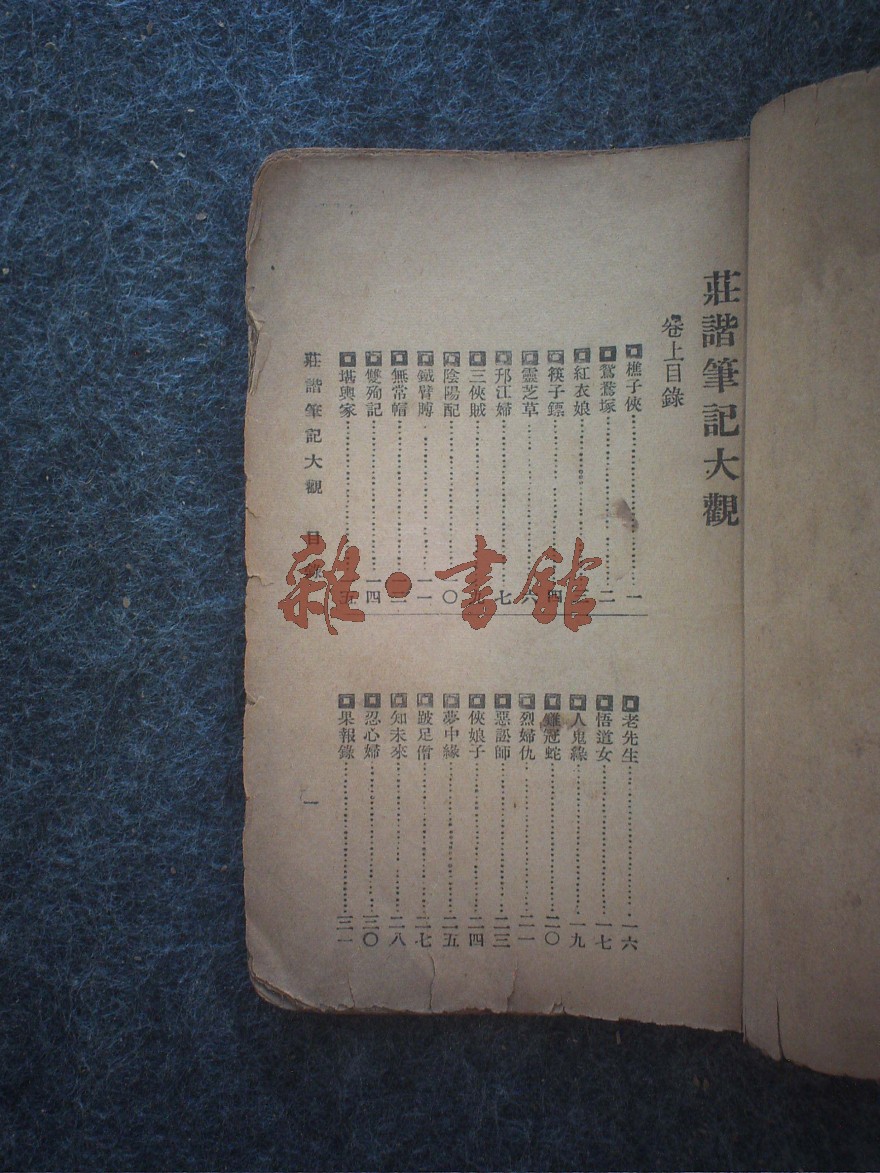 莊諧筆記大觀
卷上目錄
樵子俠……一
鴛鴦塚……二
紅衣娘……
筷子鏢……四
靈芝草……六
邗江婦……七
三俠賊……九
陰陽配……一〇
鐵臂膊……一一
無常帽……一三
雙殉記……一四
堪輿家……一五
老先生……一六
悟道女……一七
人鬼緣……一九
雞冠蛇……二〇
烈婦仇……二一
惡訟師……二三
俠娘子……二四
夢中緣……二五
跛足僧……二七
知未來……二八
忍心婦……三〇
果報錄……三一
莊諧筆記大觀 目錄
一
雜·書館